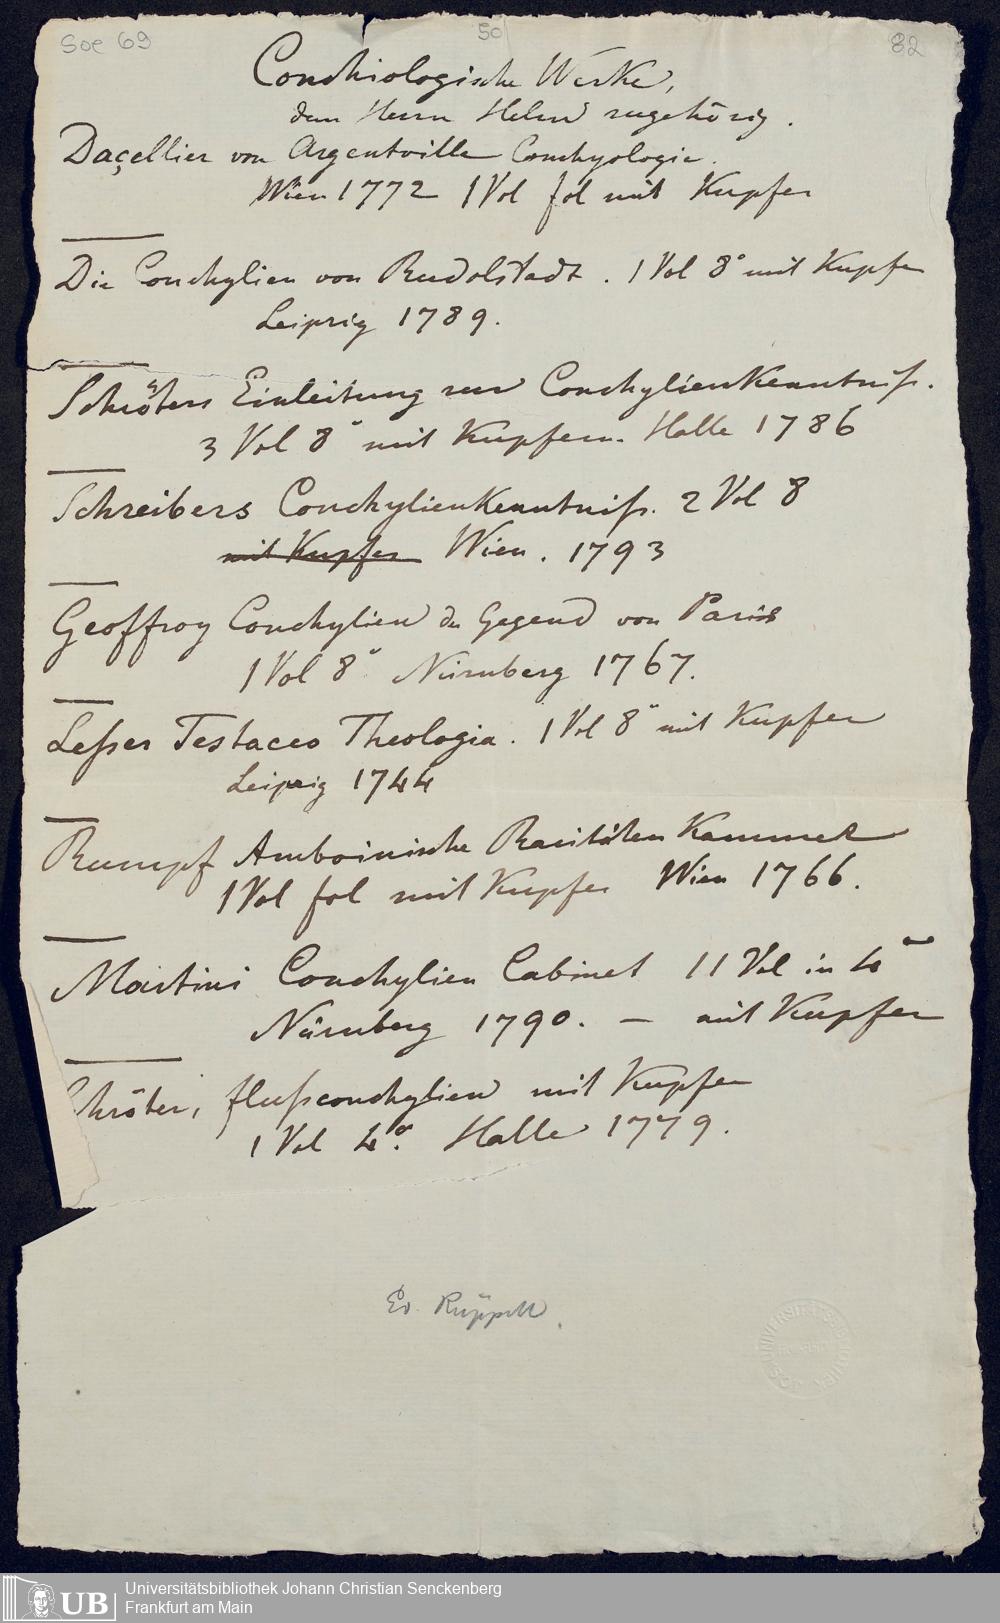 Soc 69
50
82
Conchiologische Werke,
dem Herrn Helm zugehörig.
Daçellier von Argentville Conchyologie.
Wien 1772 1 Vol fol mit Kupfer
Die Conchylien von Rudolstadt. 1 Vol 8° mit Kupfer
Leipzig 1789.
Schröters Einleitung zur Conchylienkenntniß.
3 Vol 8° mit Kupfern. Halle 1786
Schreibers Conchylienkenntniß. 2 Vol 8
mit Kupfer Wien. 1793
Geoffroy Conchylien der Gegend von Paris
1 Vol 8° Nürnberg 1767.
Leßer Testaceo Theologia. 1 Vol 8° mit Kupfer
Leipzig 1744
Rumpf Amboinische Raritäten Kammer
1 Vol fol mit Kupfer Wien 1766.
Martini Conchylien Cabinet 11 Vol in 4°
Nürnberg 1790. — mit Kupfer
Schröter, flußconchylien mit Kupfer
1 Vol 4°. Halle 1779.
Ed. Rüppell
UB
Universitätsbibliothek Johann Christian Senckenberg
Frankfurt am Main